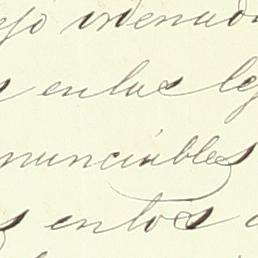 ejo ordenado
s en las le
nunciables
s en los a